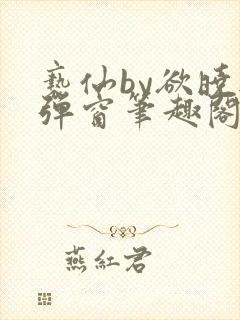 亵仙by欲晓
弹窗笔趣阁
燕红君